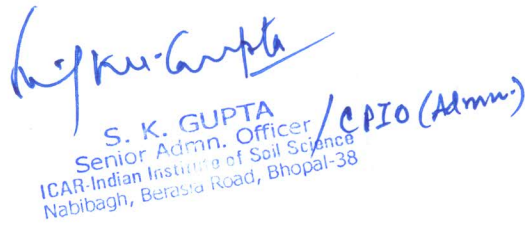 Kr. Gupta
S. K. GUPTA
Senior Admn. Officer / CPIO (Admn.)
ICAR-Indian Institute of Soil Science
Nabibagh, Berasia Road, Bhopal-38